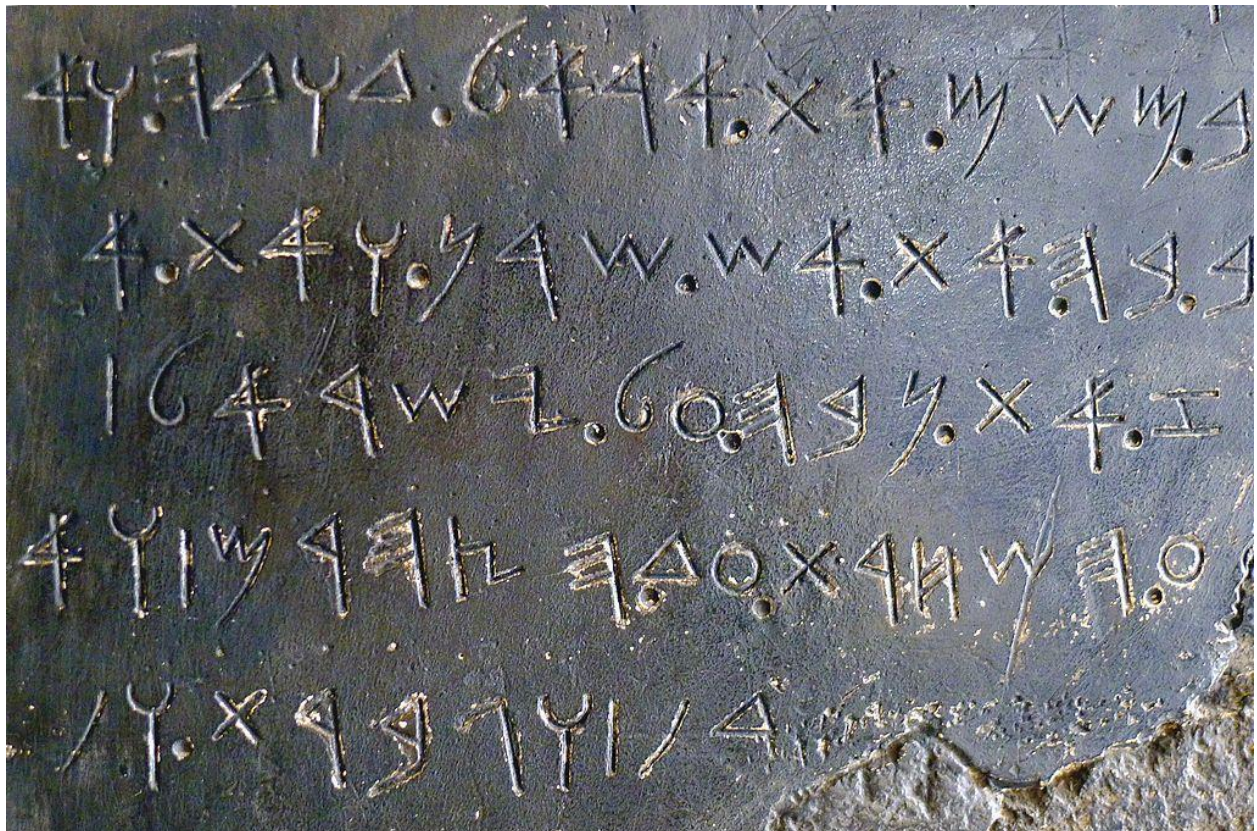 𐤁.𐤌𐤔𐤌.𐤀𐤕.𐤀𐤓𐤀𐤋.𐤃𐤅𐤃𐤄.𐤅𐤀
𐤁.𐤁𐤄.𐤀𐤕.𐤀𐤔.𐤔𐤓𐤍.𐤅𐤀𐤕.𐤀
𐤆.𐤀𐤕.𐤍𐤁𐤄.𐤏𐤋.𐤉𐤔𐤓𐤀𐤋|
𐤏.𐤄𐤔𐤇𐤓𐤕.𐤏𐤃.𐤄𐤑𐤄𐤓𐤌|𐤅𐤀
𐤓𐤍|𐤅𐤂𐤁𐤓𐤕.𐤅𐤂